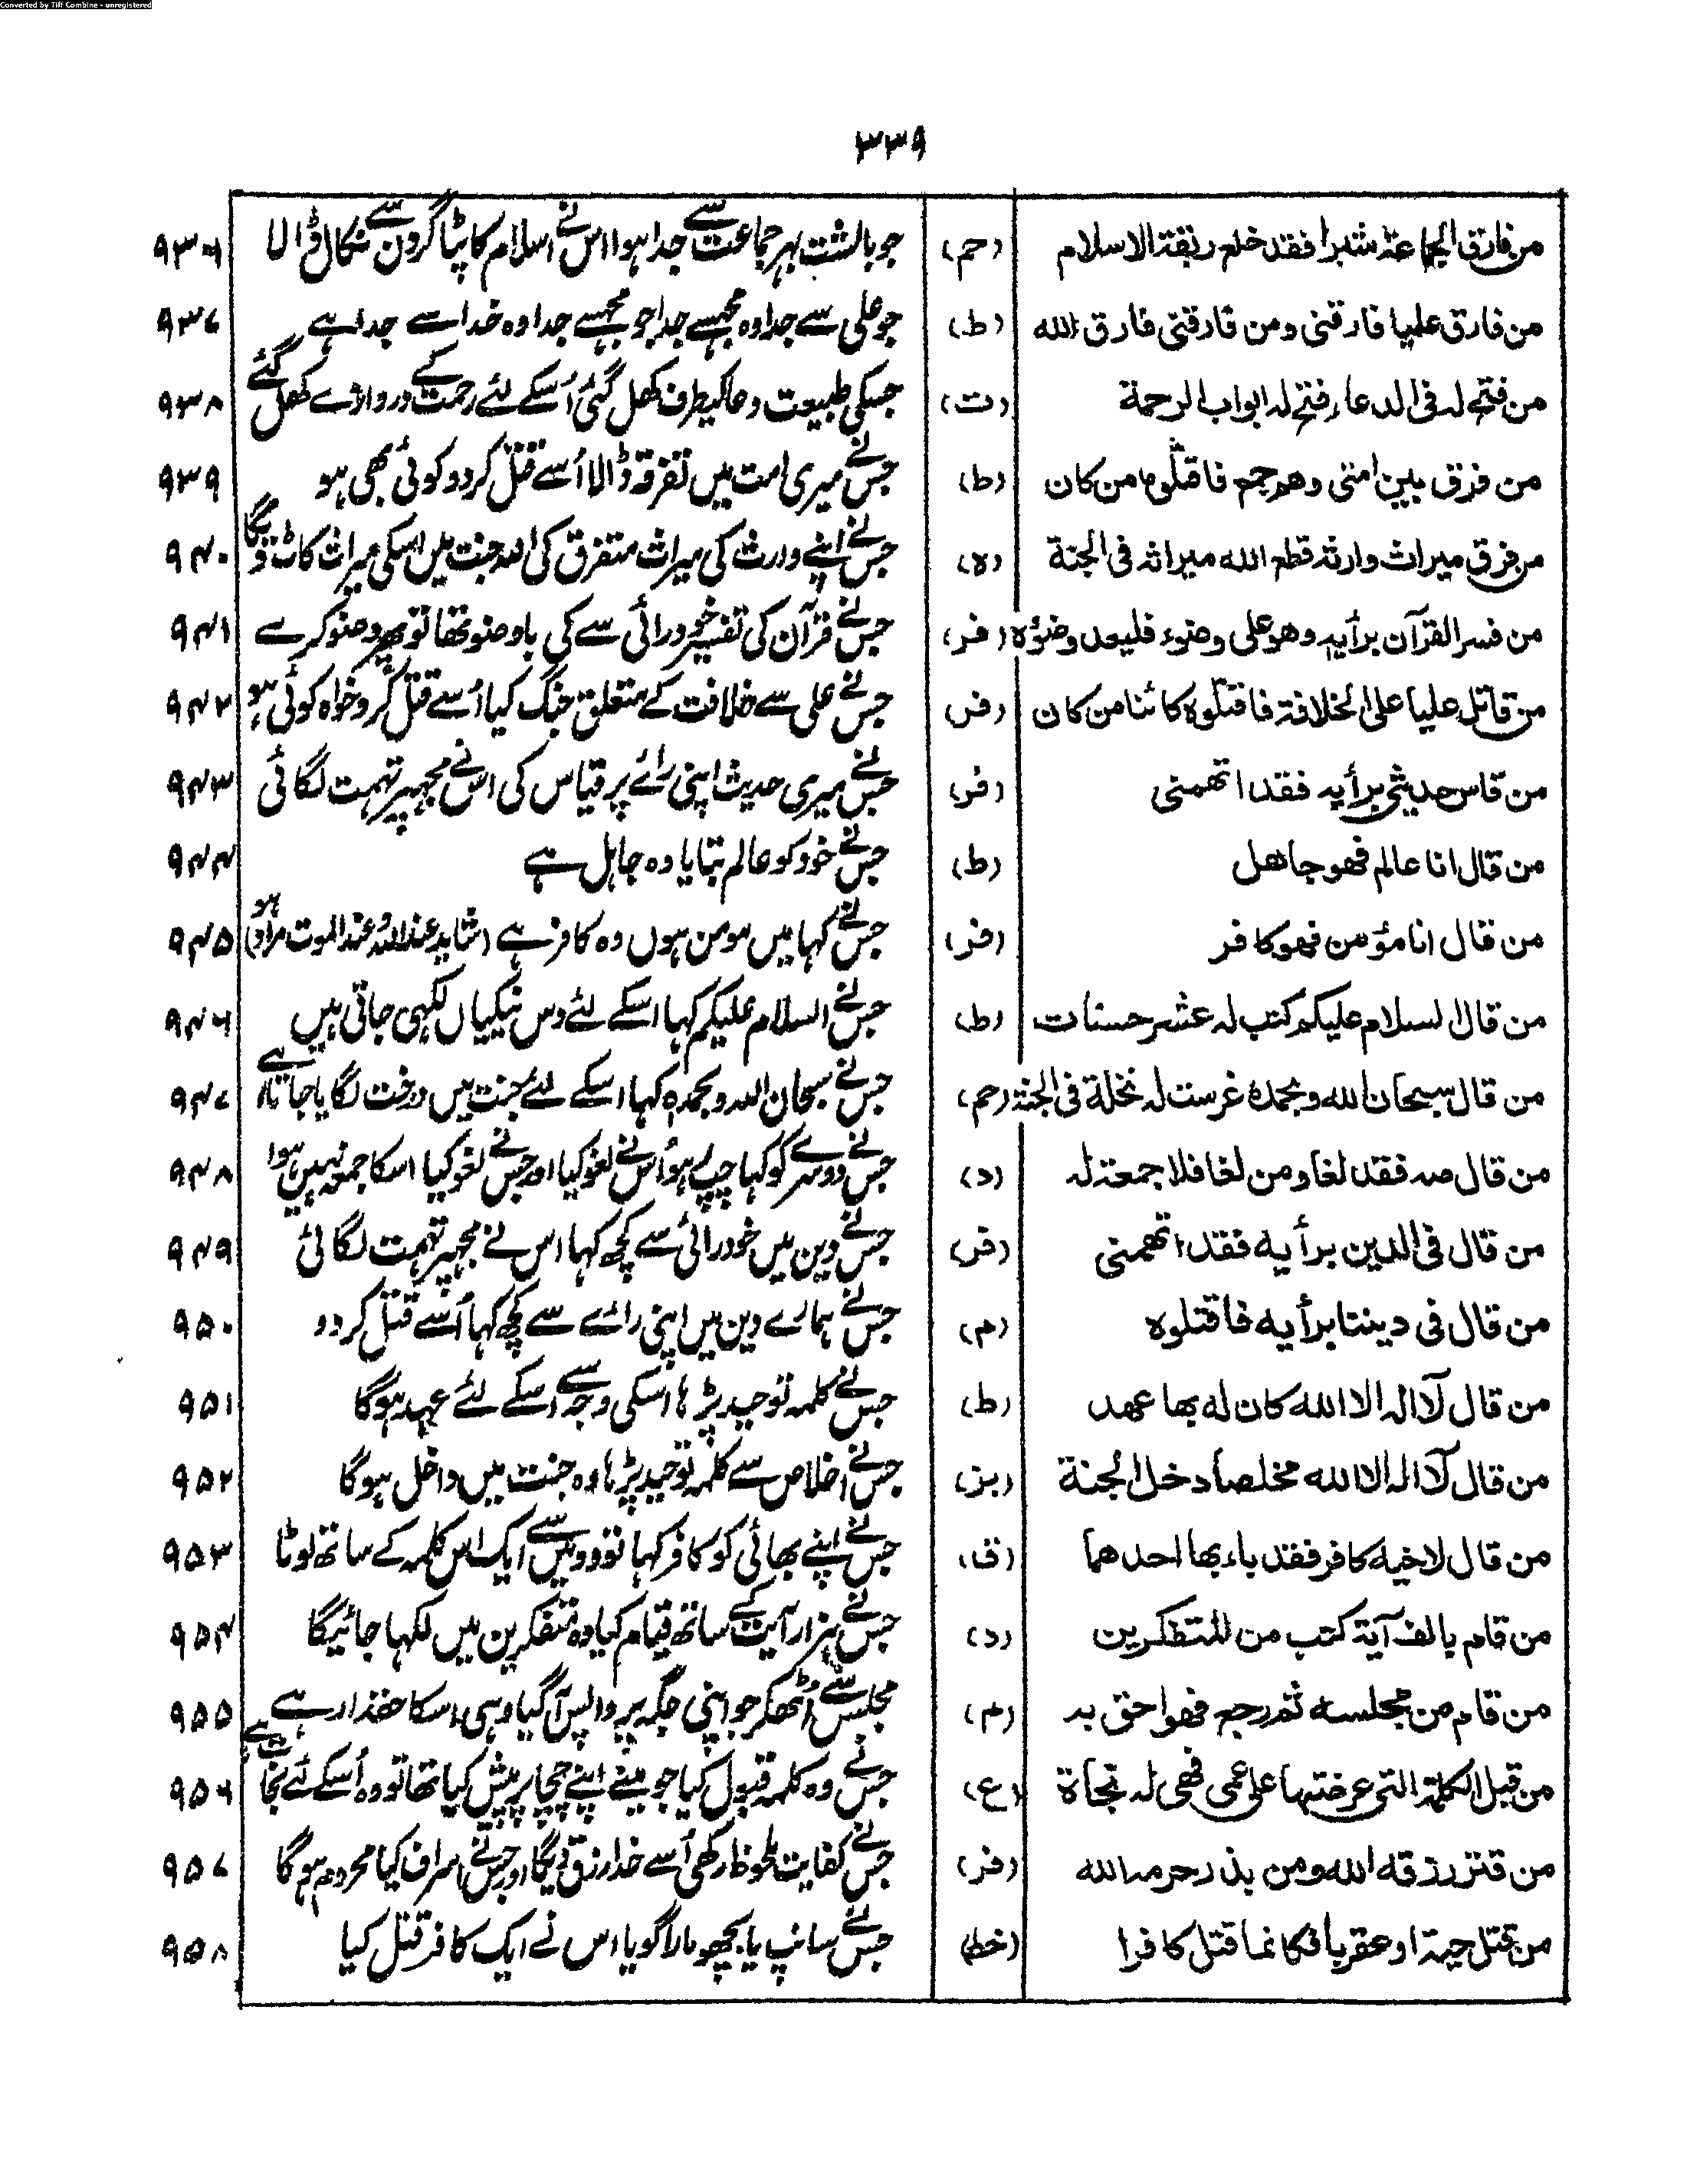 Converted by Tiff Combine - unregistered
٣٣٩
من فارق الجماعة شبرا فقد خلع ربقة الاسلام (حم) جو بالشت بھر جماعت سے جدا ہوا اس نے اسلام کا پٹا گردن سے نکال ڈالا ٩٣٦
من فارق عليا فارقنى ومن فارقنى فارق الله (ط) جو علی سے جدا وہ مجھسے جدا جو مجھسے جدا وہ خدا سے جدا ہے ٩٣٧
من فتح له فى الدعاء فتح له ابواب الرحمة (ت) جسکی طبیعت دعا کیطرف کھل گئی اُسکے لئے رحمت کے دروازے کھل گئے ٩٣٨
من فرق بين امتى وهم جمع فاقتلوه من كان (ط) جس نے میری امت میں تفرقہ ڈالا اُسے قتل کردو کوئی بھی ہو ٩٣٩
من فرق ميراث وارثه قطع الله ميراثه فى الجنة (ہ) جس نے اپنے وارث کی میراث متفرق کی اللہ جنت میں اسکی میراث کاٹ دیگا ٩٤٠
من فسر القرآن برأيه وهو على وضوء فليعد وضوءه (فر) جس نے قرآن کی تفسیر خود رائی سے کی باوضو تھا تو پھر وضو کرے ٩٤١
من قاتل عليا على الخلافة فاقتلوه كائنا من كان (فر) جس نے علی سے خلافت کے متعلق جنگ کیا اُسے قتل کرو خواہ کوئی ہو ٩٤٢
من قاس حديثى برأيه فقد اتهمنى (فر) جس نے میری حدیث اپنی رائے پر قیاس کی اس نے مجھپر تہمت لگائی ٩٤٣
من قال انا عالم فهو جاهل (ط) جس نے خود کو عالم بتایا وہ جاہل ہے ٩٤٤
من قال انا مؤمن فهو كافر (فر) جس نے کہا میں مومن ہوں وہ کافر ہے (شاید عنداللہ و عندالموت مراد ہو) ٩٤٥
من قال السلام عليكم كتب له عشر حسنات (ط) جس نے السلام علیکم کہا اسکے لئے دس نیکیاں لکھی جاتی ہیں ٩٤٦
من قال سبحان الله وبحمده غرست له نخلة فى الجنة (حم) جس نے سبحان اللہ وبحمدہ کہا اسکے لئے جنت میں درخت لگایا جاتا ہے ٩٤٧
من قال صه فقد لغا ومن لغا فلا جمعة له (د) جس نے دوسرے کو کہا چپ ہو اُس نے لغو کیا اور جس نے لغو کیا اسکا جمعہ نہیں ہوا ٩٤٨
من قال فى الدين برأيه فقد اتهمنى (فر) جس نے دین میں خود رائی سے کچھ کہا اس نے مجھپر تہمت لگائی ٩٤٩
من قال فى ديننا برأيه فاقتلوه (م) جس نے ہمارے دین میں اپنی رائے سے کچھ کہا اُسے قتل کردو ٩٥٠
من قال لآ اله الا الله كان له بها عهد (ط) جس نے کلمہ توحید پڑہا اسکی وجہ سے اسکے لئے عہد ہوگا ٩٥١
من قال لآ اله الا الله مخلصا دخل الجنة (بز) جس نے اخلاص سے کلمہ توحید پڑہا وہ جنت میں داخل ہوگا ٩٥٢
من قال لاخيه كافر فقد باء بها احدهما (ق) جس نے اپنے بھائی کو کافر کہا تو دو میں سے ایک اس کلمہ کے ساتھ لوٹا ٩٥٣
من قام بالف آية كتب من المتفكرين (د) جس نے ہزار آیت کے ساتھ قیام کیا وہ متفکرین میں لکھا جائیگا ٩٥٤
من قام من مجلسه ثم رجع فهو احق به (م) مجلس سے اُٹھکر جو اپنی جگہ پر واپس آگیا وہی اسکا حقدار ہے ٩٥٥
من قبل الكلمة التى عرضتها على عمى فهى له نجاة (ع) جس نے وہ کلمہ قبول کیا جو مینے اپنے چچا پر پیش کیا تھا تو وہ اُسکے لئے نجات ہے ٩٥٦
من قتر رزقه الله ومن بذر حرمه الله (فر) جس نے کفایت ملحوظ رکھی اُسے خدا رزق دیگا اور جس نے اسراف کیا محروم ہوگا ٩٥٧
من قتل حية او عقربا فكانما قتل كافرا (خط) جس نے سانپ یا بچھو مارا گویا اس نے ایک کافر قتل کیا ٩٥٨